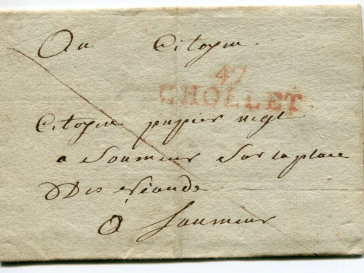 Au Citoyen
47
CHOLLET
Citoyen puppier negt
a Soumeur Sur la place
Des
à Saumeur